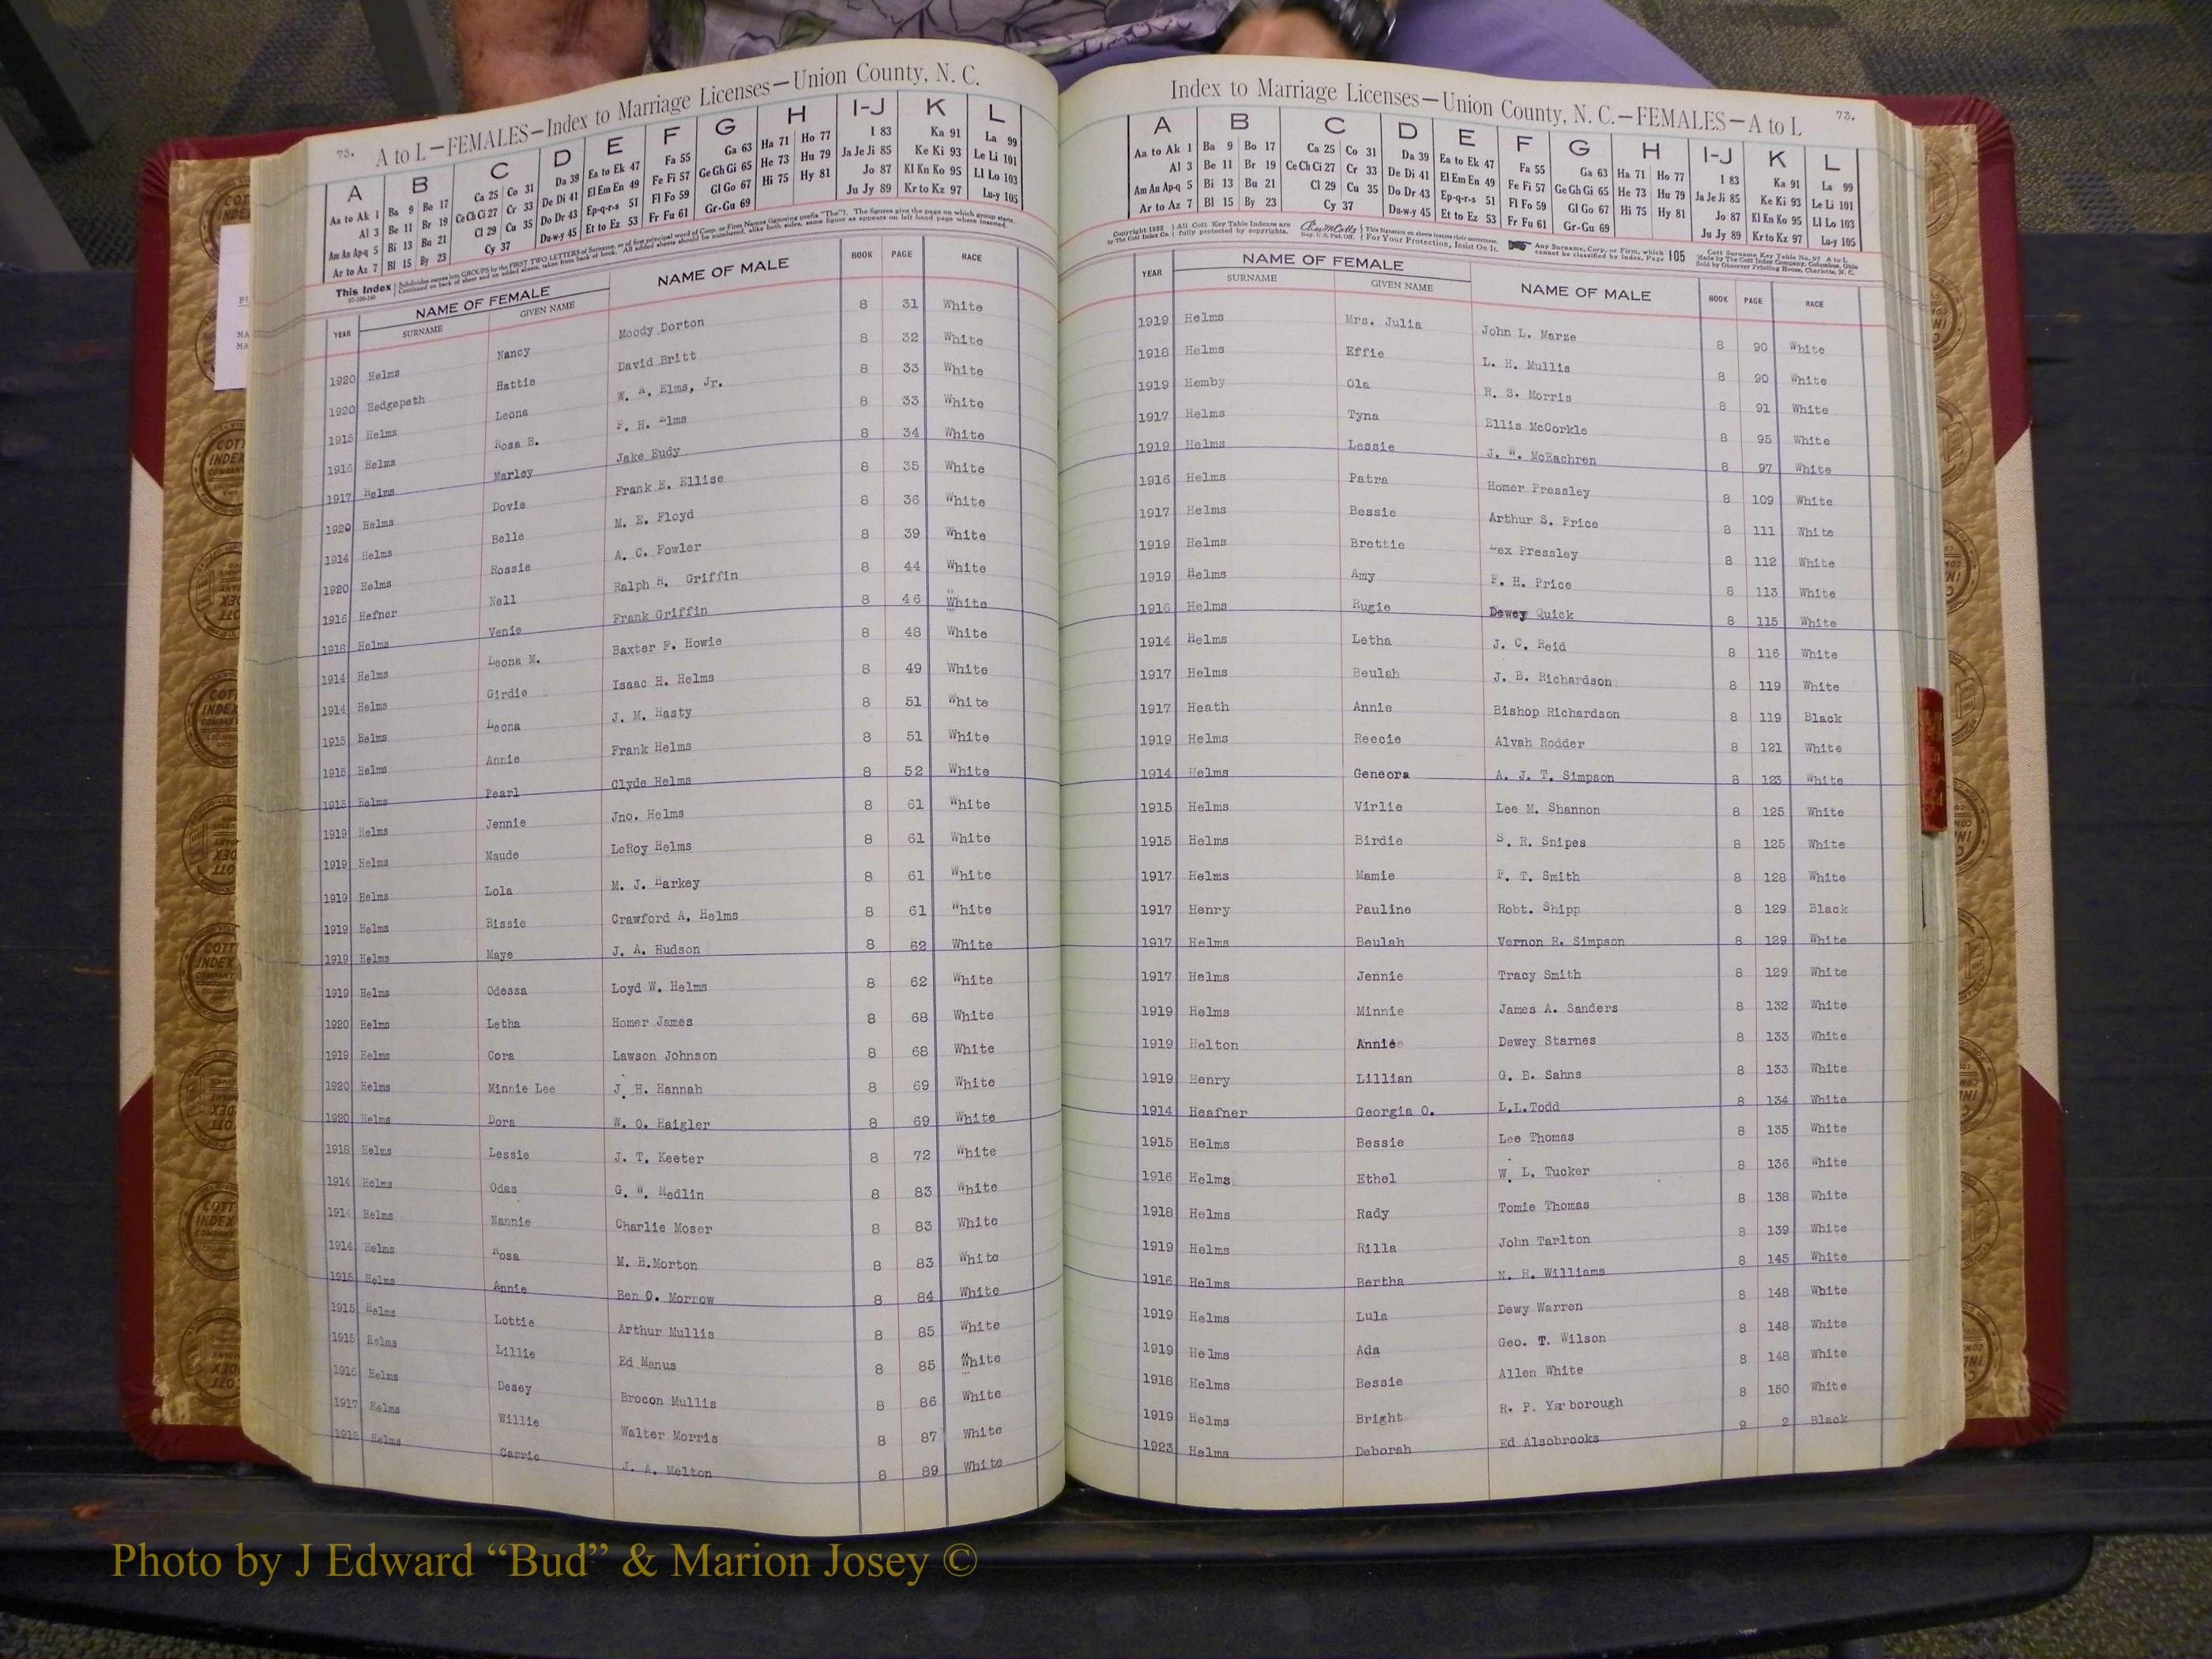 73. A to L—FEMALES—Index to Marriage Licenses—Union County, N. C.
A B C D E F G H I-J K L
Aa to Ak 1 Ba 9 Bo 17 Ca 25 Co 31 Da 39 Ea to Ek 47 Fa 55 Ga 63 Ha 71 Ho 77 I 83 Ka 91 La 99
Al 3 Be 11 Br 19 Ce Ch Ci 27 Cr 33 De Di 41 El Em En 49 Fe Fi 57 Ge Gh Gi 65 He 73 Hu 79 Ja Je Ji 85 Ke Ki 93 Le Li 101
Am An Ap-q 5 Bi 13 Bu 21 Cl 29 Cu 35 Do Dr 43 Ep-q-r-s 51 Fl Fo 59 Gl Go 67 Hi 75 Hy 81 Jo 87 Kl Kn Ko 95 Ll Lo 103
Ar to Az 7 Bl 15 By 23 Cy 37 Du-w-y 45 Et to Ez 53 Fr Fu 61 Gr-Gu 69 Ju Jy 89 Kr to Kz 97 Lu-y 105
This Index
YEAR NAME OF FEMALE SURNAME GIVEN NAME NAME OF MALE BOOK PAGE RACE
1920 Helms Nancy Moody Dorton 8 31 White
1920 Hedgepath Hattie David Britt 8 32 White
1915 Helms Leona W. A. Elms, Jr. 8 33 White
1916 Helms Rosa H. F. H. Elms 8 33 White
1917 Helms Marley Jake Eudy 8 34 White
1920 Helms Dovie Frank E. Ellise 8 35 White
1914 Helms Belle M. E. Floyd 8 36 White
1920 Helms Rossie A. C. Fowler 8 39 White
1916 Hefner Nell Ralph H. Griffin 8 44 White
1918 Helms Venie Frank Griffin 8 46 White
1914 Helms Leona M. Baxter F. Howie 8 48 White
1914 Helms Girdie Isaac H. Helms 8 49 White
1915 Helms Leona J. M. Hasty 8 51 White
1915 Helms Annie Frank Helms 8 51 White
1915 Helms Pearl Clyde Helms 8 52 White
1919 Helms Jennie Jno. Helms 8 61 White
1919 Helms Maude LeRoy Helms 8 61 White
1919 Helms Lola M. J. Harkey 8 61 White
1919 Helms Bissie Crawford A. Helms 8 61 White
1919 Helms Maye J. A. Hudson 8 62 White
1919 Helms Odessa Loyd W. Helms 8 62 White
1920 Helms Letha Homer James 8 68 White
1919 Helms Cora Lawson Johnson 8 68 White
1920 Helms Minnie Lee J. H. Hannah 8 69 White
1920 Helms Dora W. O. Haigler 8 69 White
1918 Helms Lessie J. T. Keeter 8 72 White
1914 Helms Odas G. W. Medlin 8 83 White
1914 Helms Nannie Charlie Moser 8 83 White
1914 Helms Rosa M. H.Morton 8 83 White
1915 Helms Annie Ben O. Morrow 8 84 White
1915 Helms Lottie Arthur Mullis 8 85 White
1915 Helms Lillie Ed Manus 8 85 White
1916 Helms Desey Brocon Mullis 8 86 White
1917 Helms Willie Walter Morris 8 87 White
1918 Helms Carrie J. A. Melton 8 89 White
Index to Marriage Licenses—Union County, N. C.—FEMALES—A to L 73.
A B C D E F G H I-J K L
Aa to Ak 1 Ba 9 Bo 17 Ca 25 Co 31 Da 39 Ea to Ek 47 Fa 55 Ga 63 Ha 71 Ho 77 I 83 Ka 91 La 99
Al 3 Be 11 Br 19 Ce Ch Ci 27 Cr 33 De Di 41 El Em En 49 Fe Fi 57 Ge Gh Gi 65 He 73 Hu 79 Ja Je Ji 85 Ke Ki 93 Le Li 101
Am An Ap-q 5 Bi 13 Bu 21 Cl 29 Cu 35 Do Dr 43 Ep-q-r-s 51 Fl Fo 59 Gl Go 67 Hi 75 Hy 81 Jo 87 Kl Kn Ko 95 Ll Lo 103
Ar to Az 7 Bl 15 By 23 Cy 37 Du-w-y 45 Et to Ez 53 Fr Fu 61 Gr-Gu 69 Ju Jy 89 Kr to Kz 97 Lu-y 105
All Cott Key Table Indexes are fully protected by copyrights. For Your Protection, Insist On It. Any Surname, Corp. or Firm, which cannot be classified by Index, Page 105
YEAR NAME OF FEMALE SURNAME GIVEN NAME NAME OF MALE BOOK PAGE RACE
1919 Helms Mrs. Julia John L. Marze 8 90 White
1918 Helms Effie L. H. Mullis 8 90 White
1919 Hemby Ola R. S. Morris 8 91 White
1917 Helms Tyna Ellis McCorkle 8 95 White
1919 Helms Lessie J. W. McEachren 8 97 White
1916 Helms Patra Homer Pressley 8 109 White
1917 Helms Bessie Arthur S. Price 8 111 White
1919 Helms Brettie Lex Pressley 8 112 White
1919 Helms Amy F. H. Price 8 113 White
1916 Helms Rugie Dewey Quick 8 115 White
1914 Helms Letha J. C. Reid 8 116 White
1917 Helms Beulah J. B. Richardson 8 119 White
1917 Heath Annie Bishop Richardson 8 119 Black
1919 Helms Reecie Alvah Rodder 8 121 White
1914 Helms Geneora A. J. T. Simpson 8 123 White
1915 Helms Virlie Lee M. Shannon 8 125 White
1915 Helms Birdie S. R. Snipes 8 125 White
1917 Helms Mamie F. T. Smith 8 128 White
1917 Henry Pauline Robt. Shipp 8 129 Black
1917 Helms Beulah Vernon R. Simpson 8 129 White
1917 Helms Jennie Tracy Smith 8 129 White
1919 Helms Minnie James A. Sanders 8 132 White
1919 Helton Annie Dewey Starnes 8 133 White
1919 Henry Lillian G. B. Sahns 8 133 White
1914 Heafner Georgia O. L.L.Todd 8 134 White
1915 Helms Bessie Lee Thomas 8 135 White
1916 Helms Ethel W. L. Tucker 8 136 White
1918 Helms Rady Tomie Thomas 8 138 White
1919 Helms Rilla John Tarlton 8 139 White
1916 Helms Bertha N. R. Williams 8 145 White
1919 Helms Lula Dewy Warren 8 148 White
1919 Helms Ada Geo. T. Wilson 8 148 White
1918 Helms Bessie Allen White 8 148 White
1919 Helms Bright R. P. Yarborough 8 150 White
1923 Helms Deborah Ed Alsobrooks 9 2 Black
Photo by J Edward “Bud” & Marion Josey ©